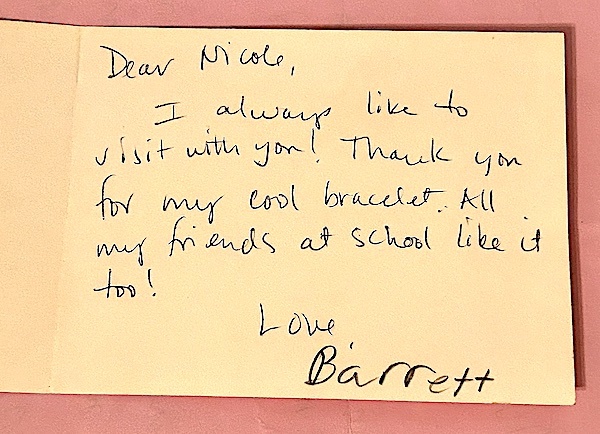 Dear Nicole,
I always like to
visit with you! Thank you
for my cool bracelet. All
my friends at school like it
too!
Love
Barrett